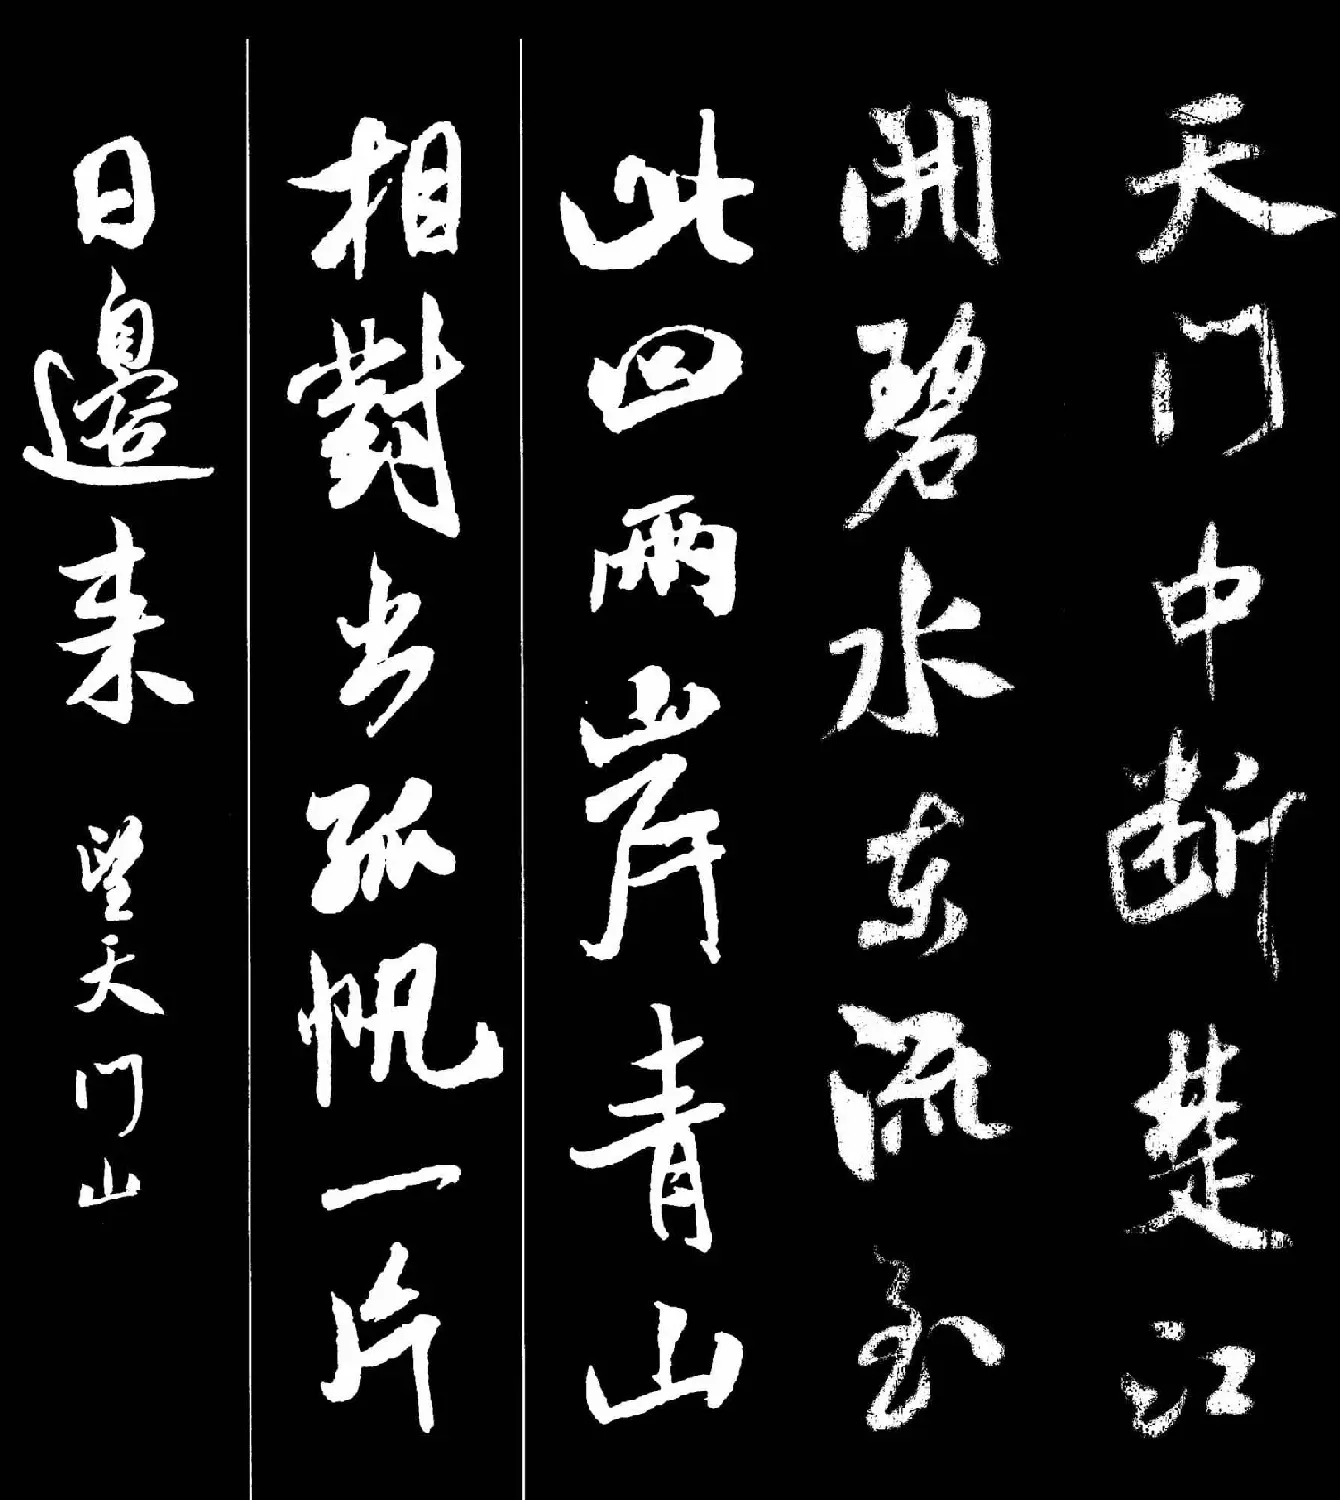 天门中断楚江
開碧水东流至
此回兩岸青山
相對出孤帆一片
日邊来 望天门山